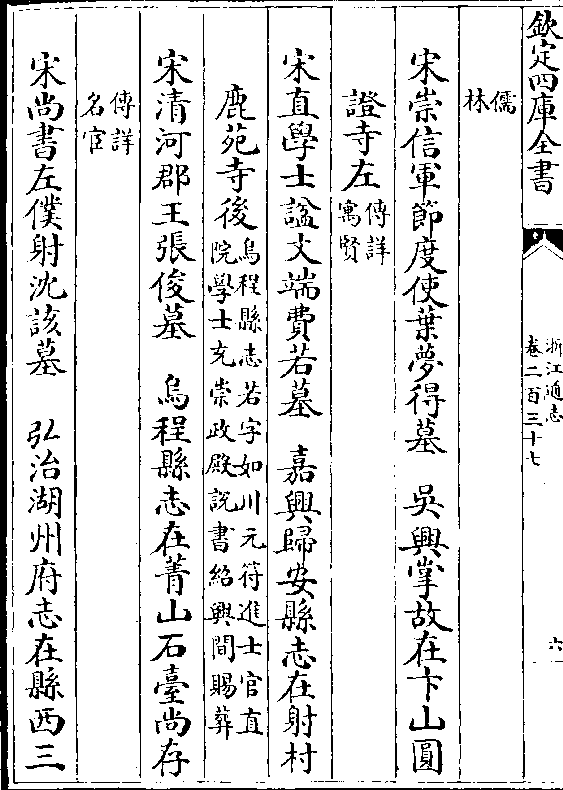 欽定四庫全書
浙江通志
卷二百三十七
六
儒
林
宋崇信軍節度使葉夢得墓　吳興掌故在卞山圓
證寺左傳詳
寓賢
宋直學士諡文端費若墓　嘉興歸安縣志在射村
鹿苑寺後烏程縣志若字如川元符進士官直
院學士充崇政殿説書紹興間賜葬
宋清河郡王張俊墓　烏程縣志在菁山石臺尚存
傳詳
名宦
宋尚書左僕射沈該墓　弘治湖州府志在縣西三